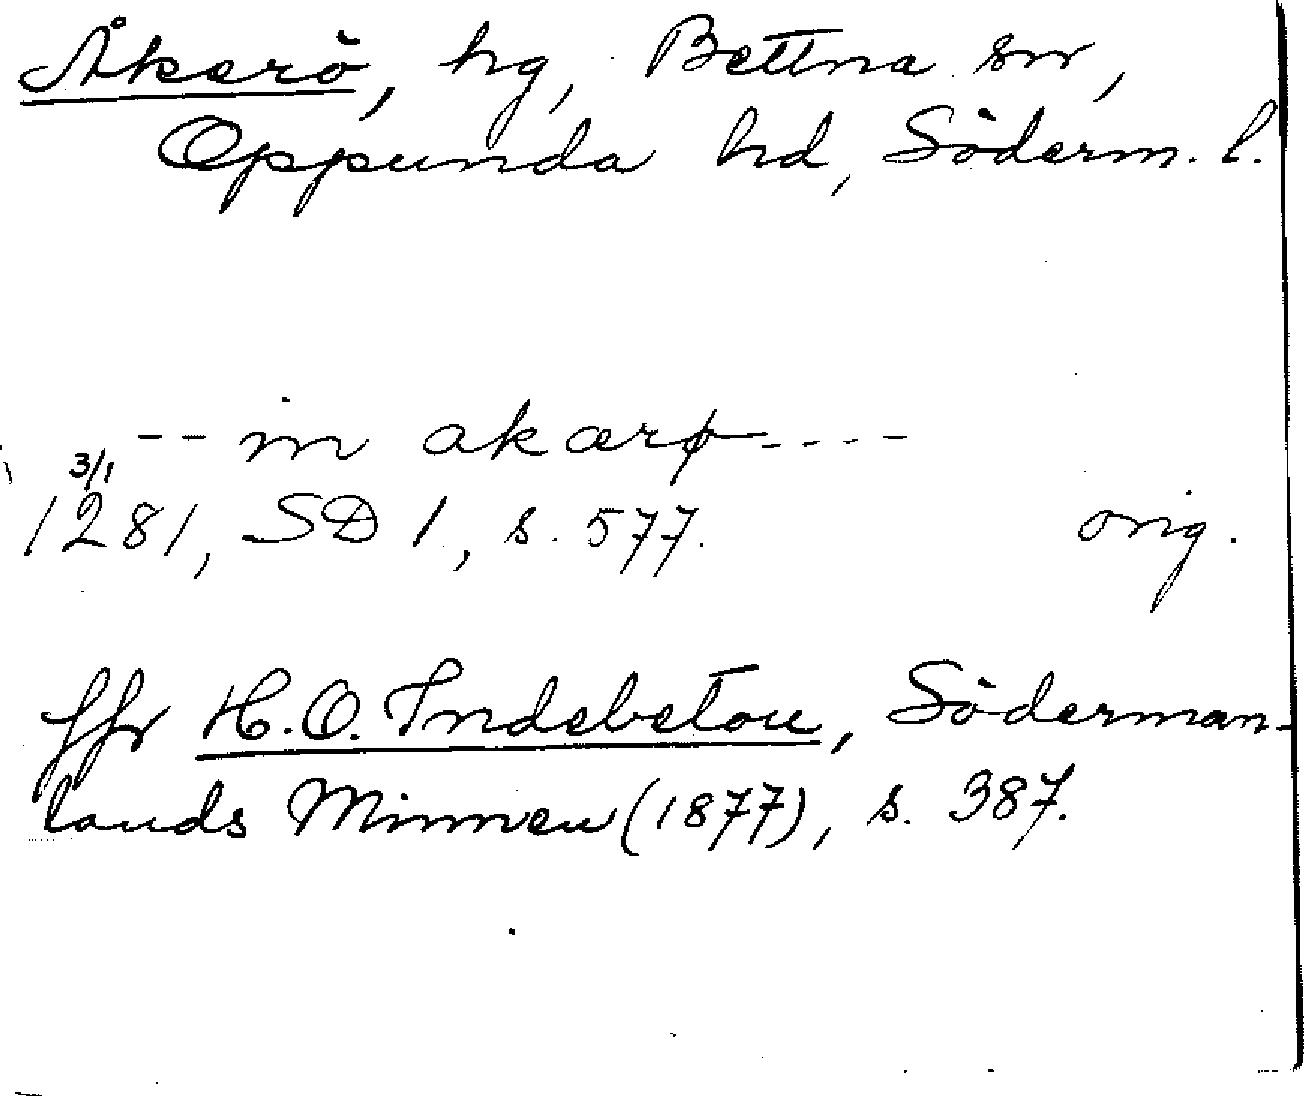 Åkerö, hg, Bettna sn,
Oppunda hd, Söderm. l.
-- in akærø ----
3/1
1281, SD 1, s. 577. orig.
Jfr H.O. Indebetou, Söderman-
lands Minnen (1877), s. 387.